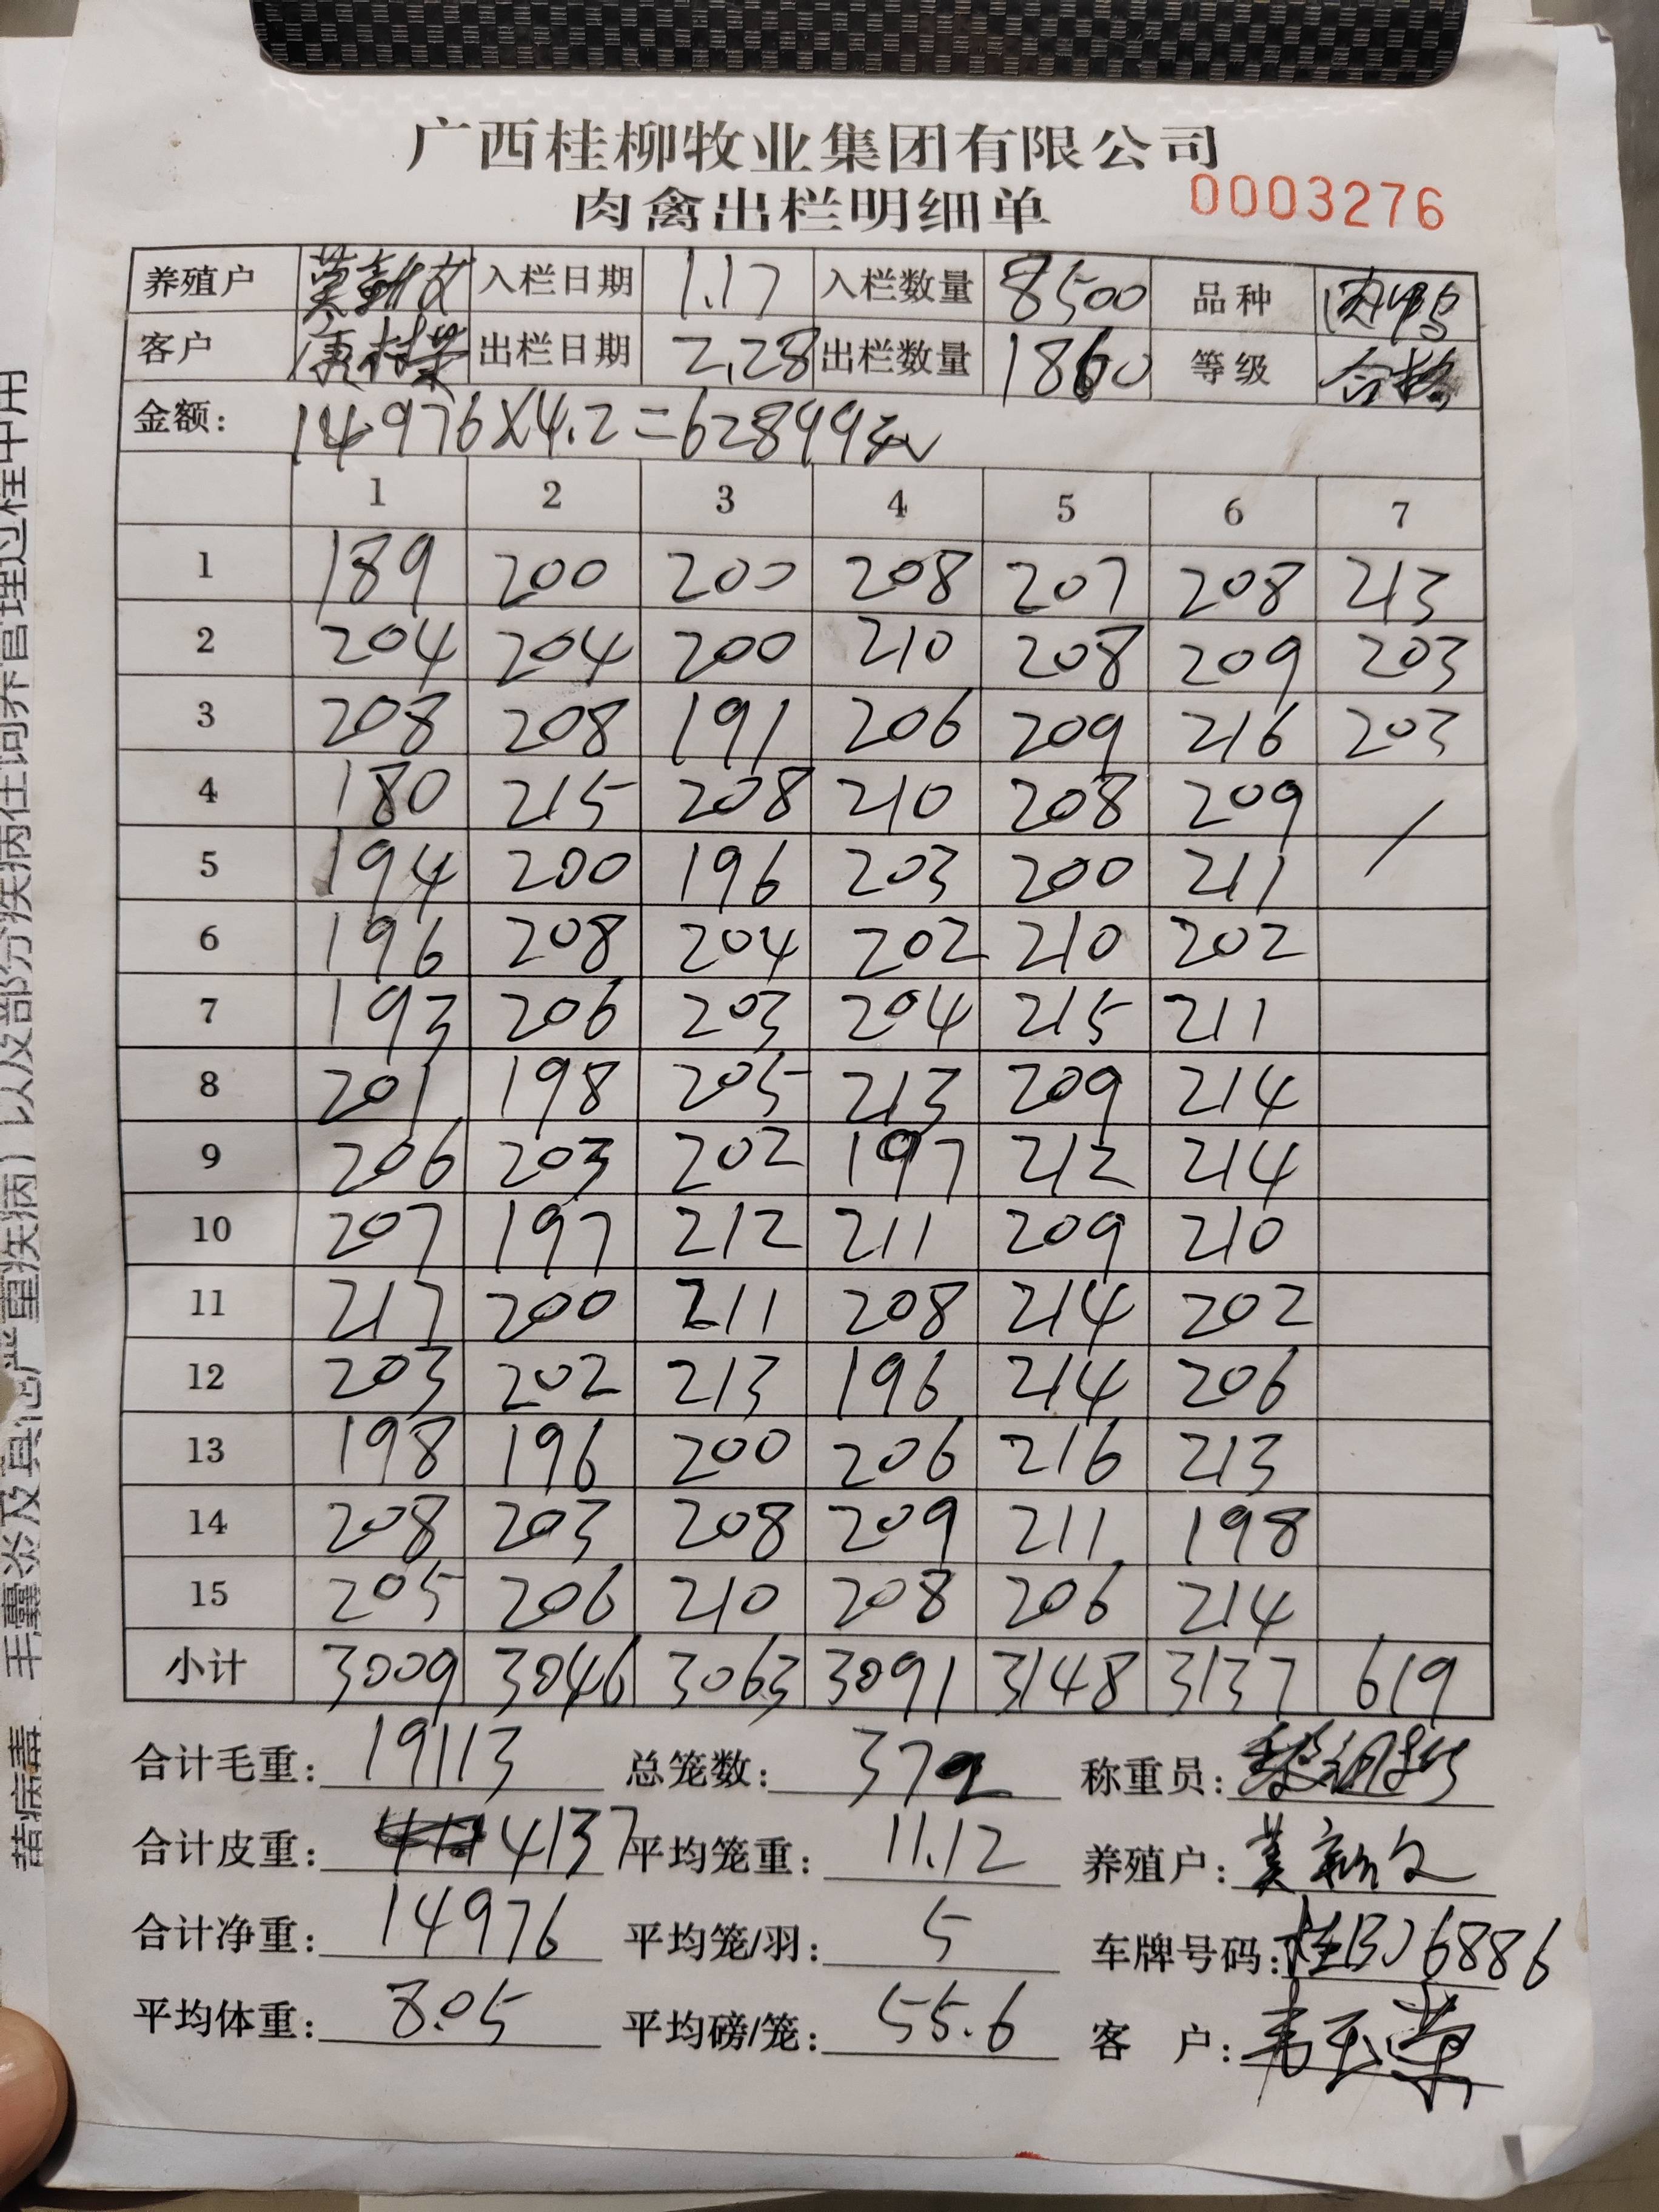 广西桂柳牧业集团有限公司
肉禽出栏明细单 0003276
养殖户 莫新文 入栏日期 1.17 入栏数量 8500 品种 肉鸭
客户 出栏日期 2.28 出栏数量 1860 等级 合格
金额: 14976X4.2=62899元
1 2 3 4 5 6 7
1 189 200 200 208 207 208 213
2 204 204 200 210 208 209 203
3 208 208 191 206 209 216 203
4 180 215 208 210 208 209 /
5 194 200 196 203 200 211
6 196 208 204 202 210 202
7 193 206 203 204 215 211
8 201 198 205 213 209 214
9 206 203 202 197 212 214
10 207 197 212 211 209 210
11 217 200 211 208 214 202
12 203 202 213 196 214 206
13 198 196 200 206 216 213
14 208 203 208 209 211 198
15 205 206 210 208 206 214
小计 3009 3046 3063 3091 3148 3137 619
合计毛重: 19113 总笼数: 372 称重员:
合计皮重: 4137 平均笼重: 11.12 养殖户: 莫新文
合计净重: 14976 平均笼/羽: 5 车牌号码: 桂BJ6886
平均体重: 8.05 平均磅/笼: 55.6 客户: 韦玉荣
以及部分疾病在饲养管理过程中用